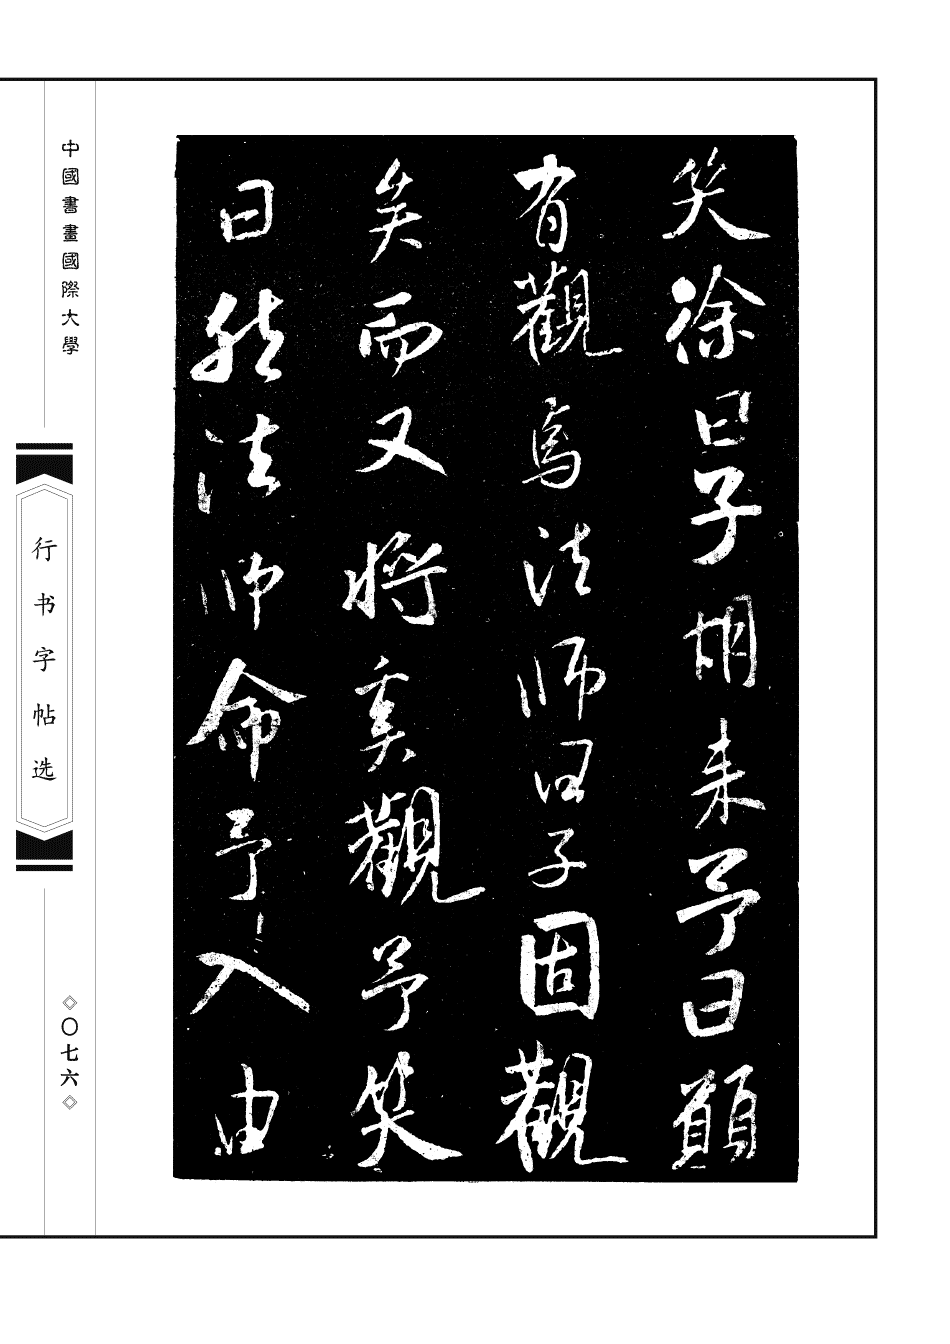 笑徐曰子胡来予曰願
有觀焉法师曰子固觀
矣而又將奚觀予笑
曰然法师命予入由
中國書畫國際大學
行书字帖选
〇七六